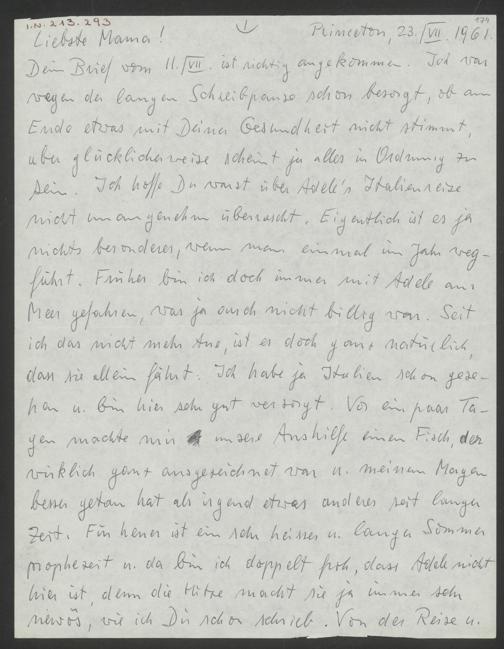 I.N. 213.293
1
174
Princeton, 23./VII. 1961.
Liebste Mama!
Dein Brief vom 11./VII. ist richtig angekommen. Ich war
wegen der langen Schreibpause schon besorgt, ob am
Ende etwas mit Deiner Gesundheit nicht stimmt,
aber glücklicherweise scheint ja alles in Ordnung zu
sein. Ich hoffe Du warst über Adele's Italienreise
nicht unangenehm überrascht. Eigentlich ist es ja
nichts besonderes, wenn man einmal im Jahr weg-
fährt. Früher bin ich doch immer mit Adele ans
Meer gefahren, was ja auch nicht billig war. Seit
ich das nicht mehr tue, ist es doch ganz natürlich,
dass sie allein fährt. Ich habe ja Italien schon gese-
hen u. bin hier sehr gut versorgt. Vor ein paar Ta-
gen machte mir unsere Aushilfe einen Fisch, der
wirklich ganz ausgezeichnet war u. meinem Magen
besser getan hat als irgend etwas anderes seit langer
Zeit. Für heuer ist ein sehr heisser u. langer Sommer
prophezeit u. da bin ich doppelt froh, dass Adele nicht
hier ist, denn die Hitze macht sie ja immer sehr
nervös, wie ich Dir schon schrieb. Von der Reise u.